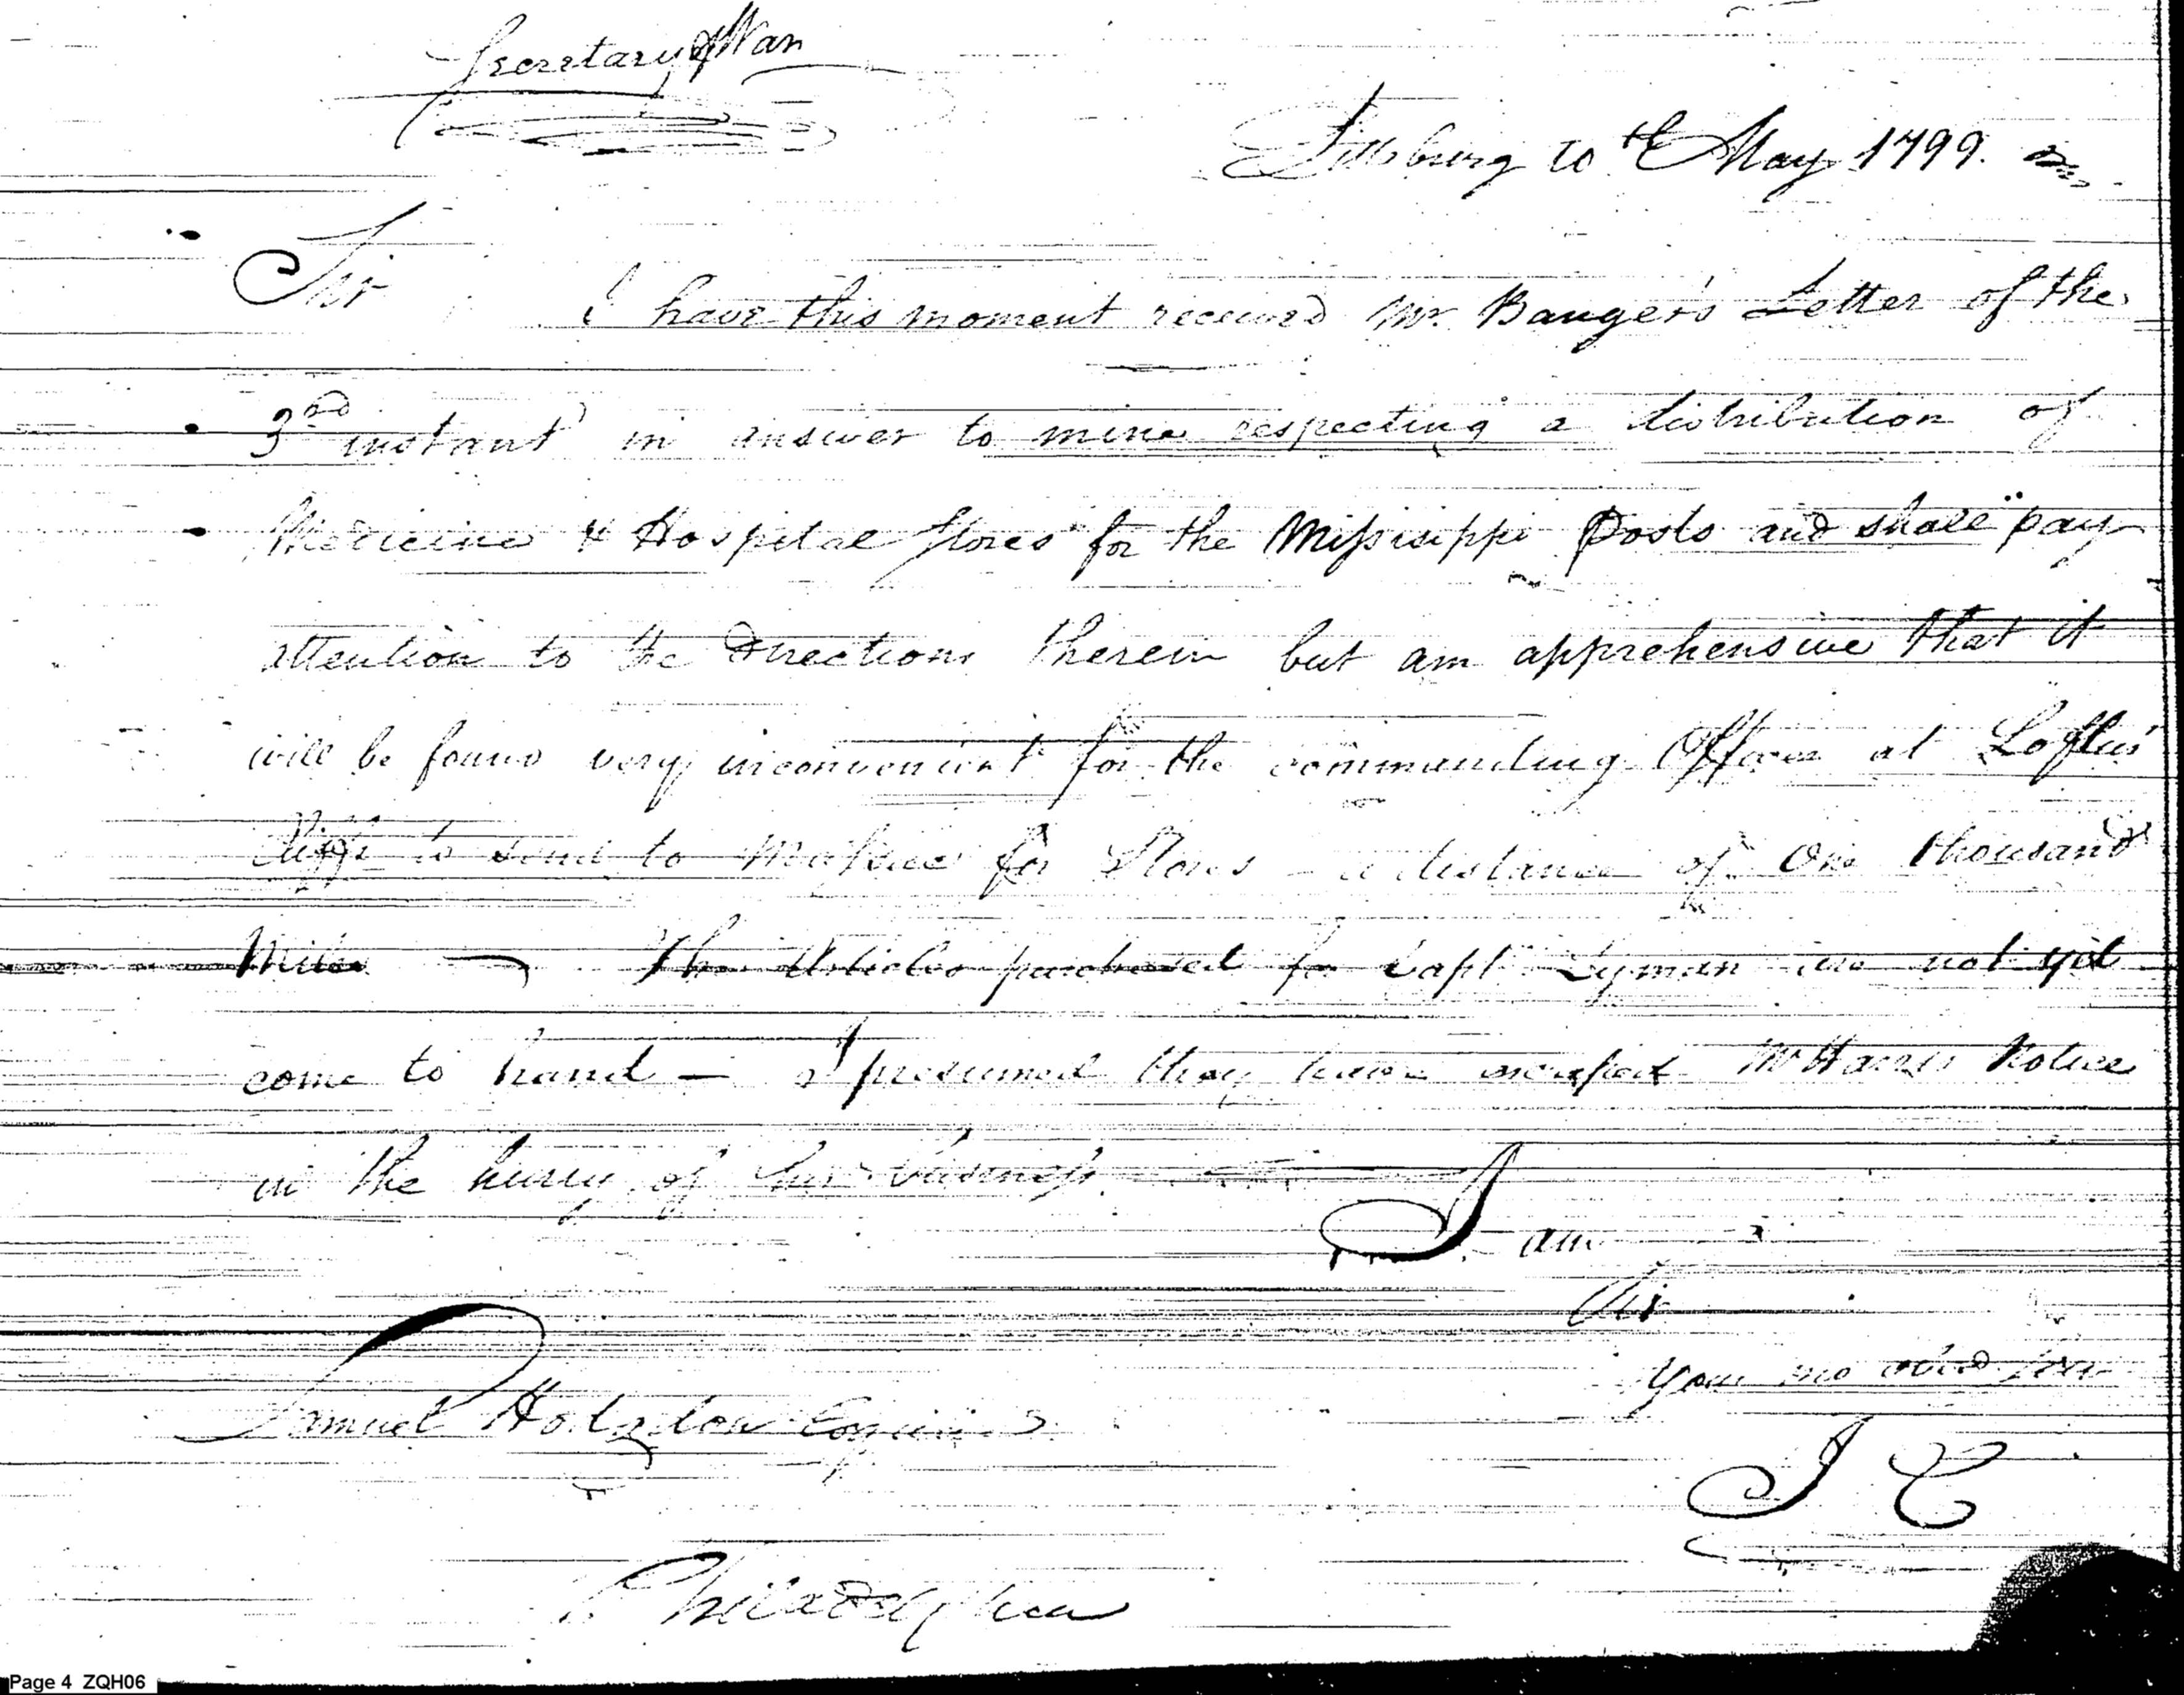 Secretary of War
Pittsburg 10th May 1799.
Sir
I have this moment received Mr. Banger's Letter of the
3rd instant in answer to mine respecting a distribution of
Medicine & Hospital Stores for the Missisippi Posts and shall pay
attention to the Directions therein but am apprehensive that it
will be found very inconvenient for the commanding Officer at Loftus'
Cliffs to send to Massac for Stores a distance of One thousand
Miles — The Articles purchased for Capt Lyman are not yet
come to hand — I presumed they have escaped Mr Harris Notice
in the hurry of his business
I am
Sir
Your mo obed Serv
Samuel Hodgdon Esquire
I C
Philadelphia
Page 4 ZQH06